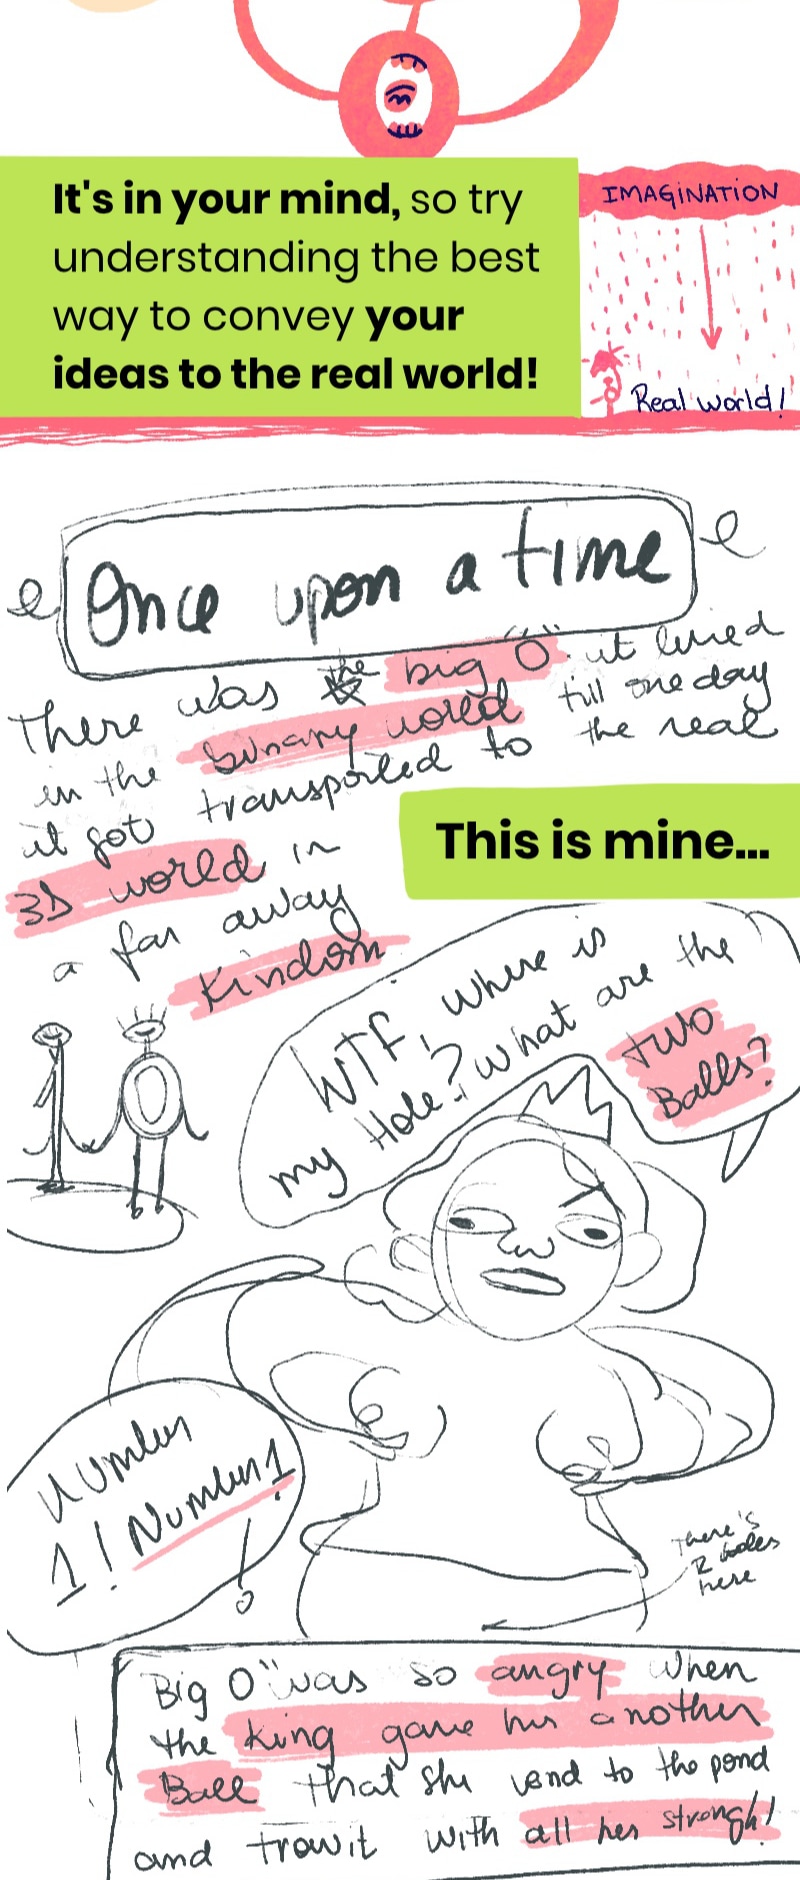 It's in your mind, so try
understanding the best
way to convey your
ideas to the real world!
IMAGINATION
Real world!
Once upon a time
There was the big "O". it lived
in the binary world till one day
it got transported to the real
3D world in
a far away
Kindom
This is mine...
WTF, where is
my Hole? What are the
two
Balls?
Number
1! Number 1
!
There's
2 holes
here
Big O" was so angry when
the King gave her another
Ball that she vend to the pond
and trow it with all her strongh!